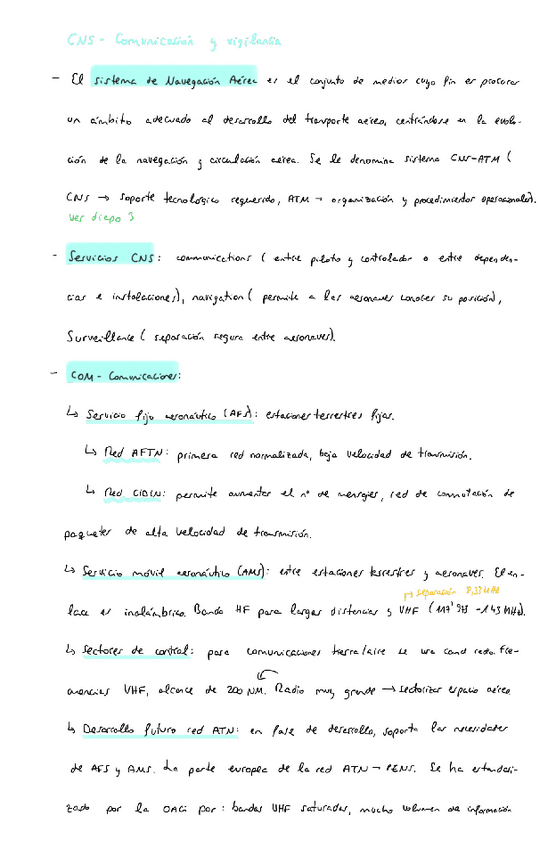 CNS - Comunicación y vigilancia
- El sistema de Navegación Aérea es el conjunto de medios cuyo fin es procurar
un ámbito adecuado al desarrollo del transporte aéreo, centrándose en la evolu-
ción de la navegación y circulación aérea. Se le denomina sistema CNS-ATM (
CNS → soporte tecnológico requerido, ATM → organización y procedimientos operacionales).
Ver diapo 3
- Servicios CNS: communications (entre piloto y controlador o entre dependen-
cias e instalaciones), navigation (permite a las aeronaves conocer su posición),
Surveillance (separación segura entre aeronaves).
- COM - Comunicaciones:
↳ Servicio fijo aeronáutico (AFS): estaciones terrestres fijas.
↳ Red AFTN: primera red normalizada, baja velocidad de transmisión.
↳ Red CIDIN: permite aumentar el nº de mensajes, red de conmutación de
paquetes de alta velocidad de transmisión.
↳ Servicio móvil aeronáutico (AMS): entre estaciones terrestres y aeronaves. El en-
↳ separación 8,33 kHz
lace es inalámbrico. Banda HF para largas distancias y VHF (117'975 - 143 MHz).
↳ Sectores de control: para comunicaciones tierra/aire se usa canal radio. Fre-
cuencias VHF, alcance de 200 NM. Radio muy grande → sectorizar espacio aéreo
↳ Desarrollo futuro red ATN: en fase de desarrollo, soporta las necesidades
de AFS y AMS. La parte europea de la red ATN → PENS. Se ha estandari-
zado por la OACI por: bandas VHF saturadas, mucho volumen de información